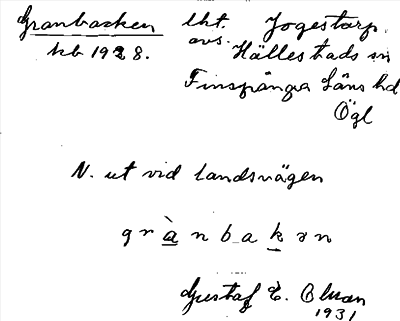 Granbacken lht. Jogestorp.
kb 1928. avs. Hällestads sn
Finspånga Läns hd
Ögl
N. ut vid landsvägen
grànbakən
Gustaf E. Olsson
1931